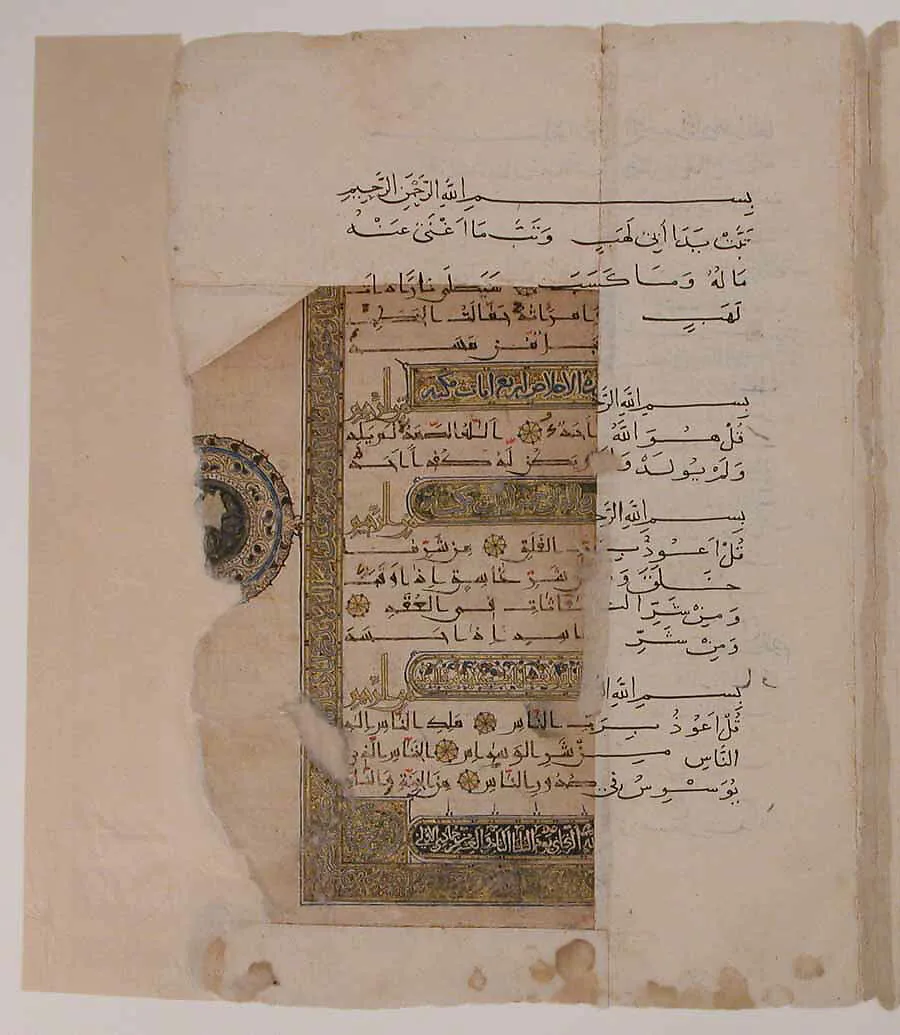 بِسْمِ اللهِ الرَّحْمَنِ الرَّحِيمِ
تَبَّتْ يَدَا أَبِي لَهَبٍ وَتَبَّ مَا اَغْنَى عَنْهُ
مَالُهُ وَمَا كَسَبَ سَيَصْلَى نارًا ذات
لَهَبٍ امراته حمالة الحطب
الاخلاص اربع ايات مكية
بِسْمِ اللهِ الرَّحْمن الرحيم
قُلْ هُوَ اللهُ احد الله الصمد لم يلد
وَلَمْ يُولَدْ وَلم يكن له كفوا احد
بِسْمِ اللهِ الرَّحْمن الرحيم
قُلْ اَعُوذُ بِرب الفلق من شر ما
خَلَقَ وَمن شر غاسق اذا وقب
وَمِنْ شَرِّ النفاثات في العقد
وَمِنْ شَرِّ حاسد اذا حسد
بِسْمِ اللهِ الرحمن الرحيم
قُلْ اَعُوذُ بِرَبّ الناس ملك الناس اله
النَّاسِ مِنْ شر الوسواس الناس الذي
يُوَسْوِسُ فِي صدور الناس من الجنة والناس